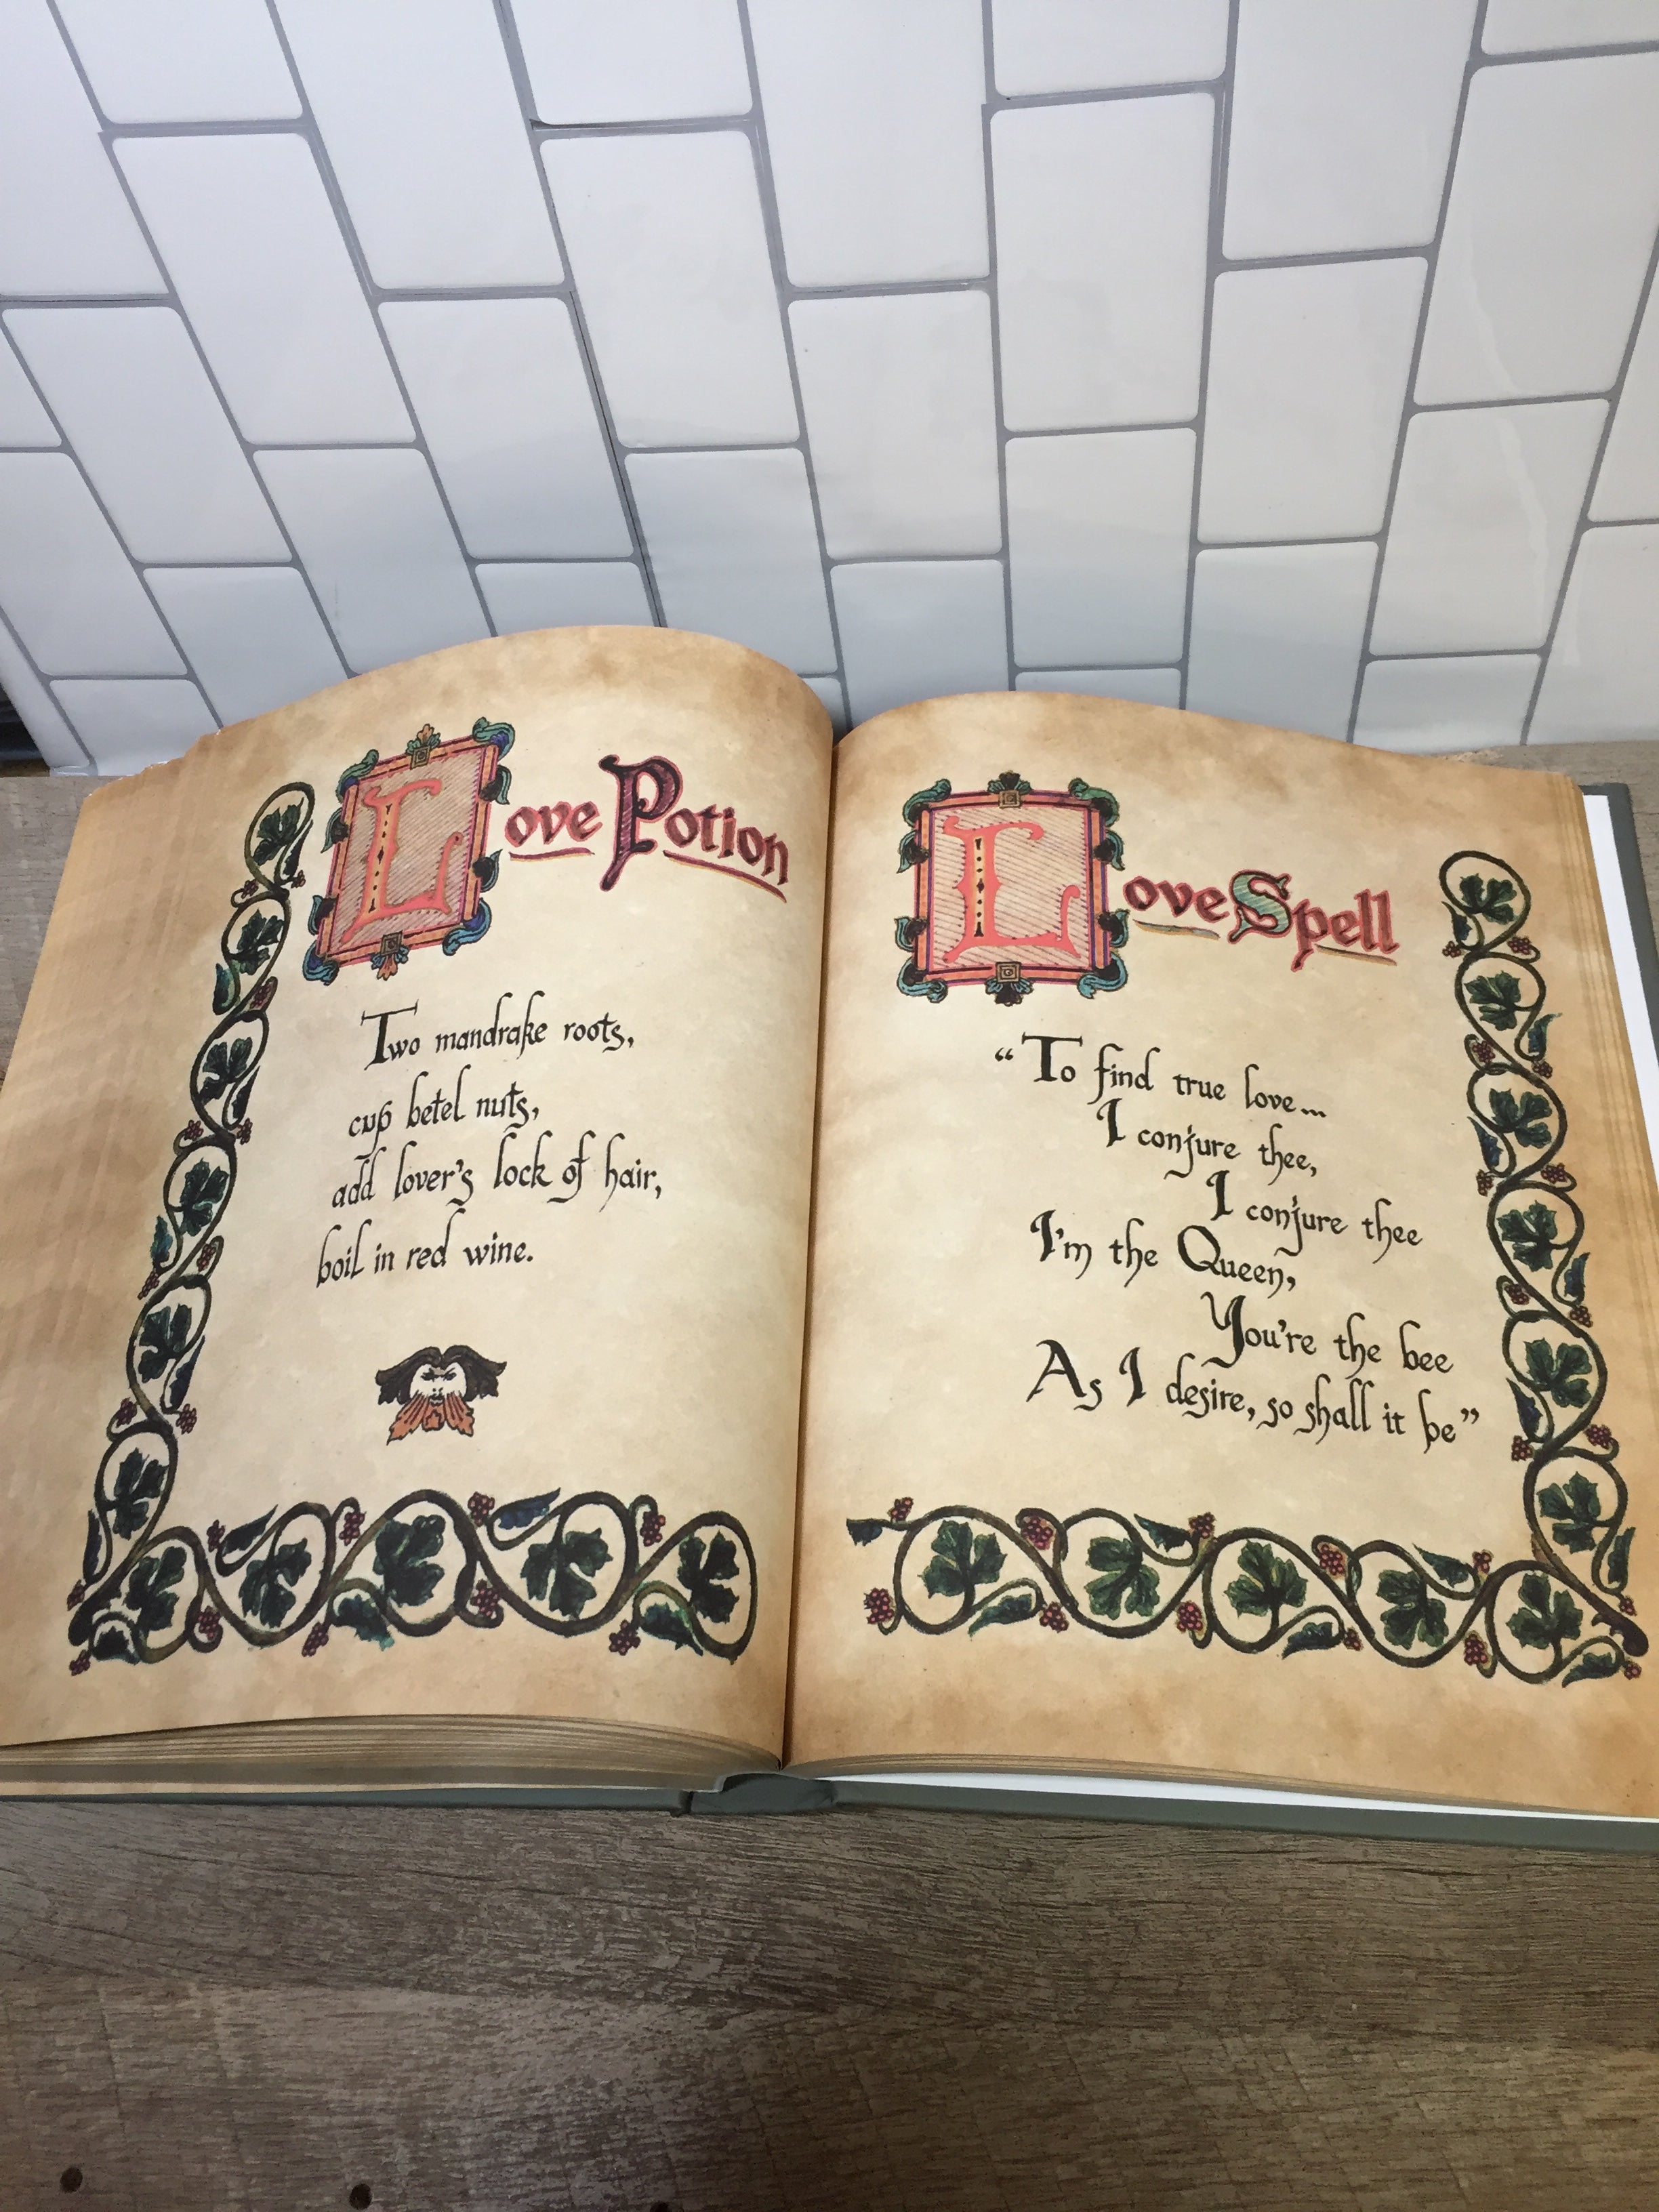 Love Potion
Two mandrake roots,
cup betel nuts,
add lover's lock of hair,
boil in red wine.
Love Spell
“To find true love...
I conjure thee,
I conjure thee
I'm the Queen,
You're the bee
As I desire, so shall it be”